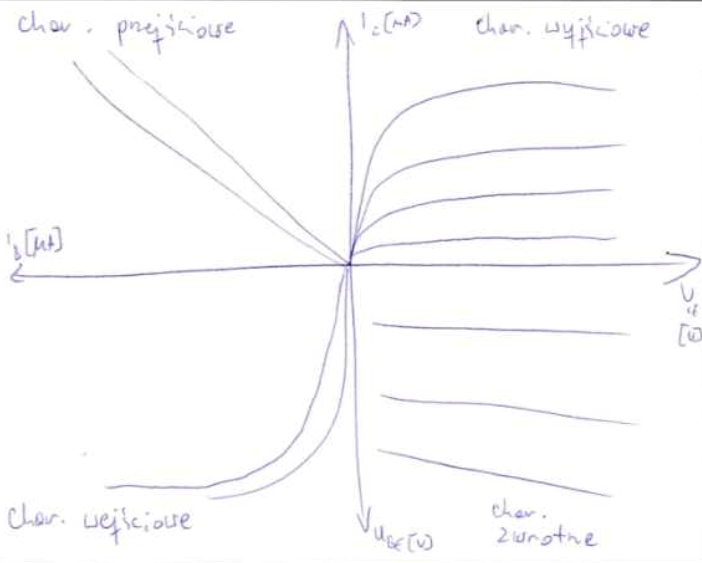 char. przejściowe
I_C [mA]
char. wyjściowe
I_B [μA]
U_CE
[V]
char. wejściowe
U_BE [V]
char.
zwrotne